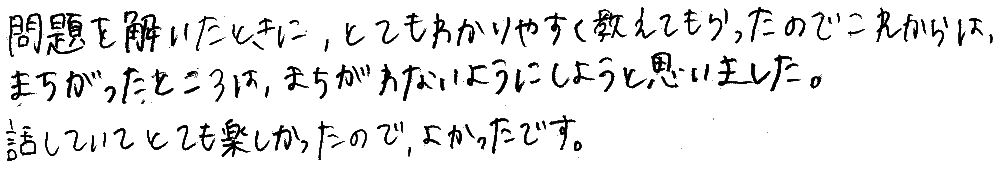 問題を解いたときに,とてもわかりやすく教えてもらったのでこれからは,
まちがったところは,まちがわないようにしようと思いました。
話していてとても楽しかったので,よかったです。